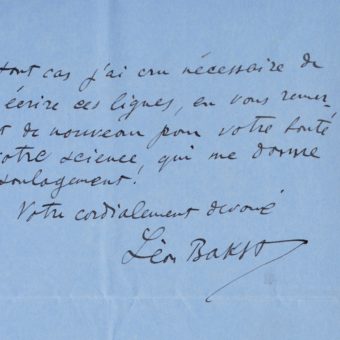 tout cas j'ai cru nécessaire de
écrire ces lignes, en vous remer-
t de nouveau pour votre bonté
otre science, qui me donne
soulagement!
Votre cordialement dévoué
Léon Bakst